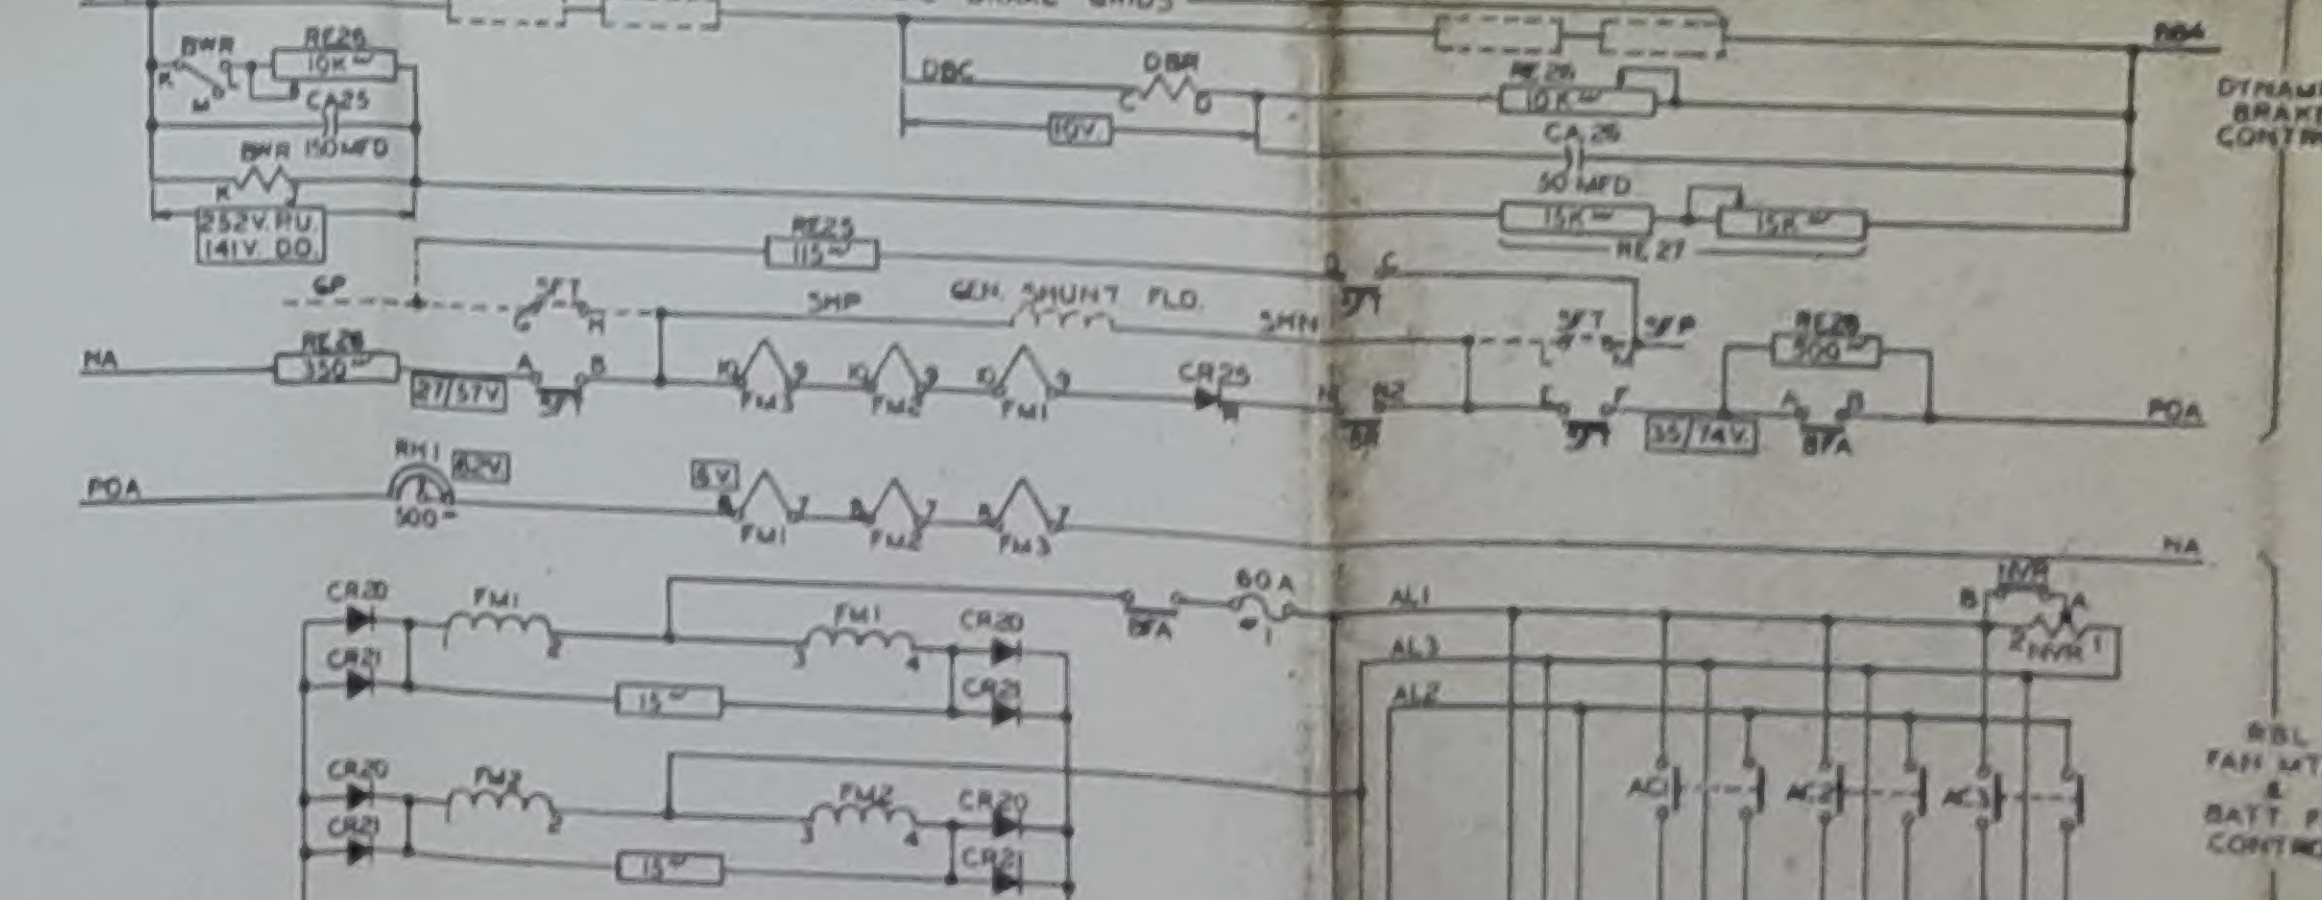 BWR
RE26
10K
K
L
M
CA25
150 MFD
BWR
K
252V. P.U.
141V. D.O.
DBC
DBR
C
D
10V.
RE26
10K
CA 26
50 MFD
15K
15K
RE 27
DYNAM
BRAKE
CONTR
RE25
115
GP
SFT
G
H
SHP
GEN. SHUNT FLD.
SHN
C
SFT
SFP
NA
RE28
350
27/57V
A
B
10
9
FM3
10
9
FM2
10
9
FM1
CR25
E
F
35/74V.
RE28
500
A
B
BFA
PDA
PDA
RH1
62V
500
5V
8
7
FM1
8
7
FM2
8
7
FM3
NA
CR20
FM1
2
CR21
15
FM1
3
4
CR20
CR21
BFA
60A
AL1
AL3
AL2
B
NVR
A
2
NVR
1
CR20
FM2
2
CR21
15
FM2
3
4
CR20
CR21
AC1
AC2
AC3
RBL
FAN MT
&
BATT. P
CONTRO